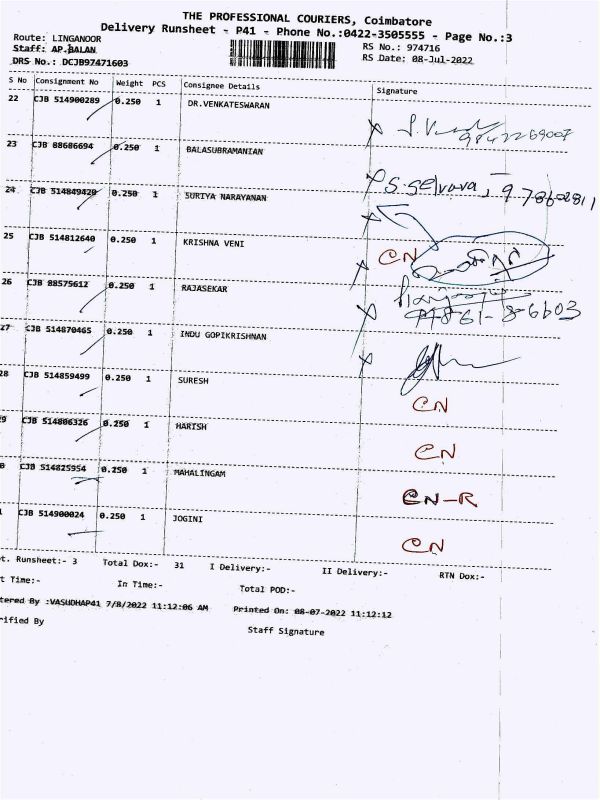 THE PROFESSIONAL COURIERS, Coimbatore
Delivery Runsheet - P41 - Phone No.:0422-3505555 - Page No.:3
Route: LINGANOOR RS No.: 974716
Staff: AP.BALAN RS Date: 08-Jul-2022
DRS No.: DCJB97471603
S No Consignment No Weight PCS Consignee Details Signature
22 CJB 514900289 0.250 1 DR.VENKATESWARAN
9842269007
23 CJB 88686694 0.250 1 BALASUBRAMANIAN
S.Selvara,
24 CJB 514849429 0.250 1 SURIYA NARAYANAN
25 CJB 514812640 0.250 1 KRISHNA VENI CN
26 CJB 88575612 0.250 1 RAJASEKAR
27 CJB 514870465 0.250 1 INDU GOPIKRISHNAN
28 CJB 514859499 0.250 1 SURESH CN
9 CJB 514806326 0.250 1 HARISH CN
0 CJB 514825954 0.250 1 MAHALINGAM CN-R
CJB 514900024 0.250 1 JOGINI CN
t. Runsheet:- 3 Total Dox:- 31 I Delivery:- II Delivery:- RTN Dox:-
t Time:- In Time:- Total POD:-
tered By :VASUDHAP41 7/8/2022 11:12:06 AM Printed On: 08-07-2022 11:12:12
rified By Staff Signature